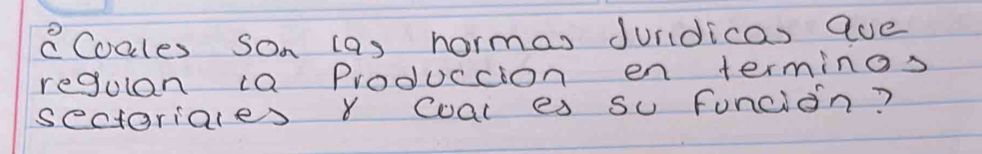 ¿Cuales son las normas Juridicas que
regulan la Produccion en terminos
sectoriales y cual es su función?